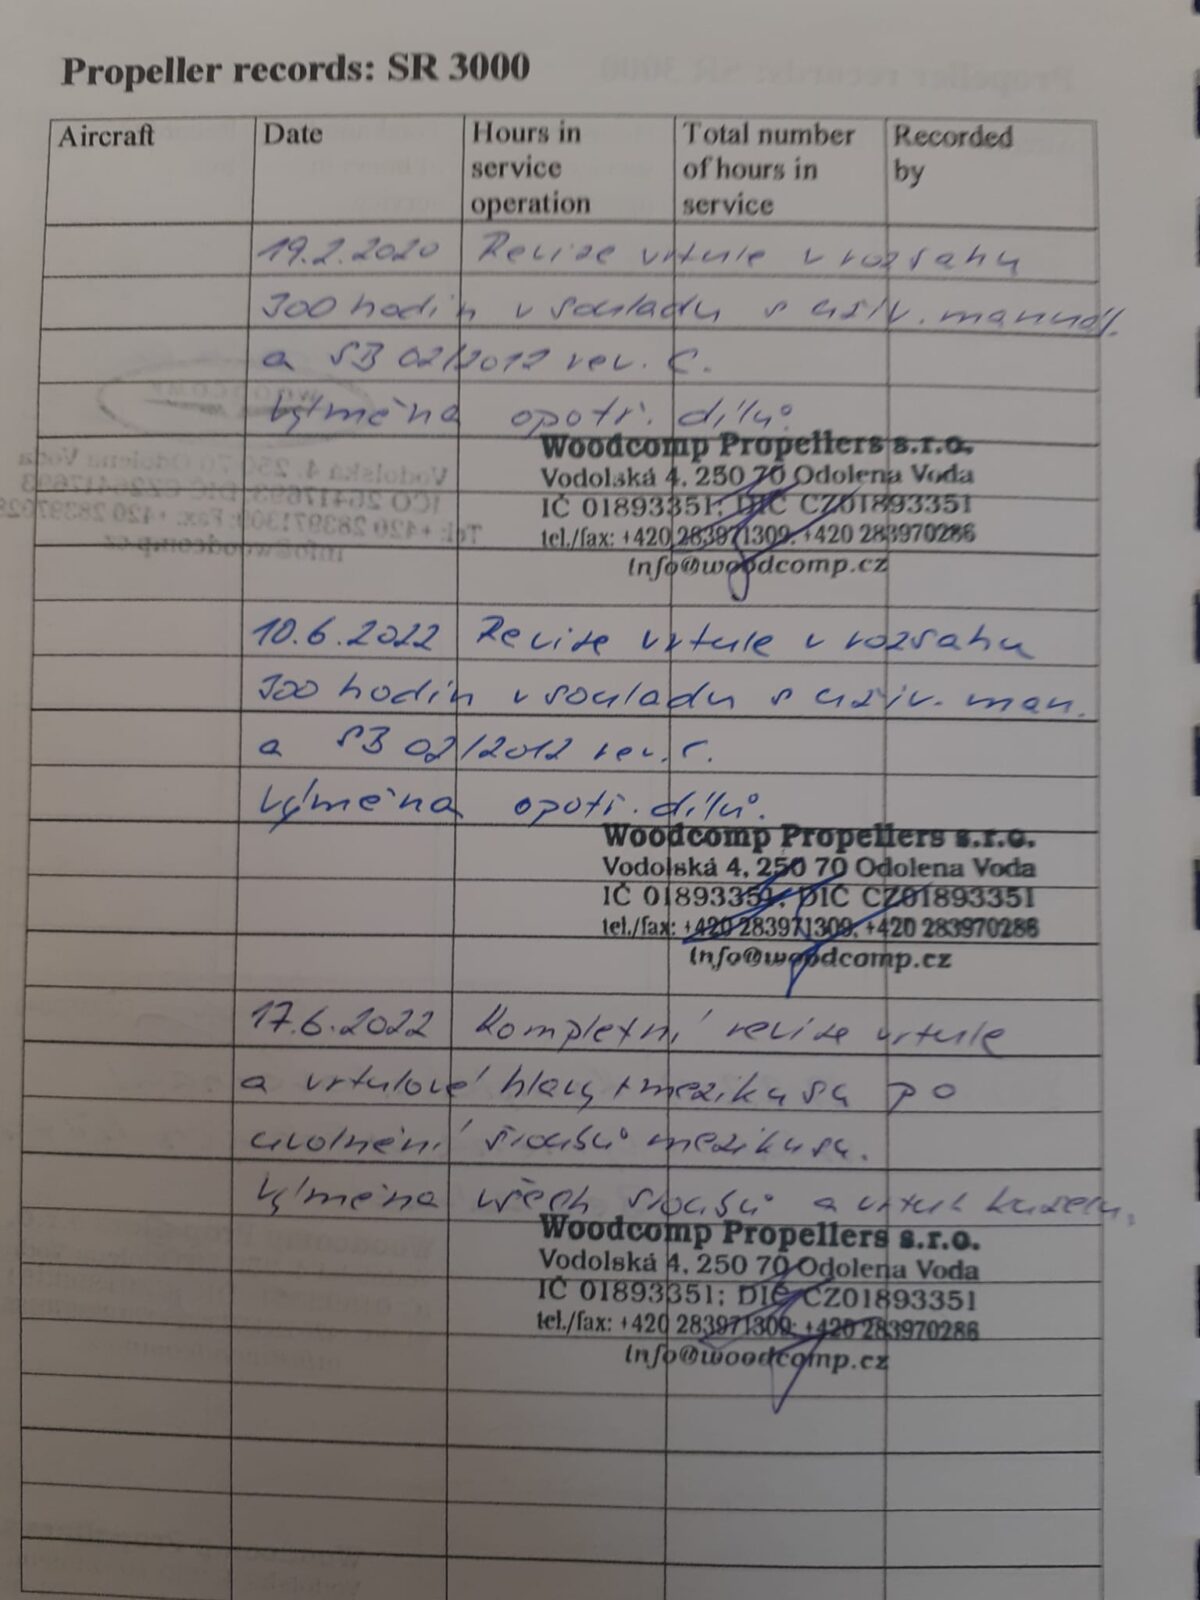 Propeller records: SR 3000
Aircraft
Date
Hours in service operation
Total number of hours in service
Recorded by
19.2.2020 Revize vrtule v rozsahu
300 hodin v souladu s uživ. manuál.
a SB 02/2012 rev. C.
Výměna opotř. dílů.
Woodcomp Propellers s.r.o.
Vodolská 4, 250 70 Odolena Voda
IČ 01893351; DIČ CZ01893351
tel./fax: +420 283971309; +420 283970286
info@woodcomp.cz
10.6.2022 Revize vrtule v rozsahu
300 hodin v souladu s uživ. man.
a SB 02/2012 rev. C.
Výměna opotř. dílů.
Woodcomp Propellers s.r.o.
Vodolská 4, 250 70 Odolena Voda
IČ 01893351; DIČ CZ01893351
tel./fax: +420 283971309; +420 283970286
info@woodcomp.cz
17.6.2022 Kompletní revize vrtule
a vrtulové hlavy + mezikusu po
uvolnění šroubů mezikusu.
Výměna všech šroubů a vrtul. kuželu.
Woodcomp Propellers s.r.o.
Vodolská 4, 250 70 Odolena Voda
IČ 01893351; DIČ CZ01893351
tel./fax: +420 283971309; +420 283970286
info@woodcomp.cz